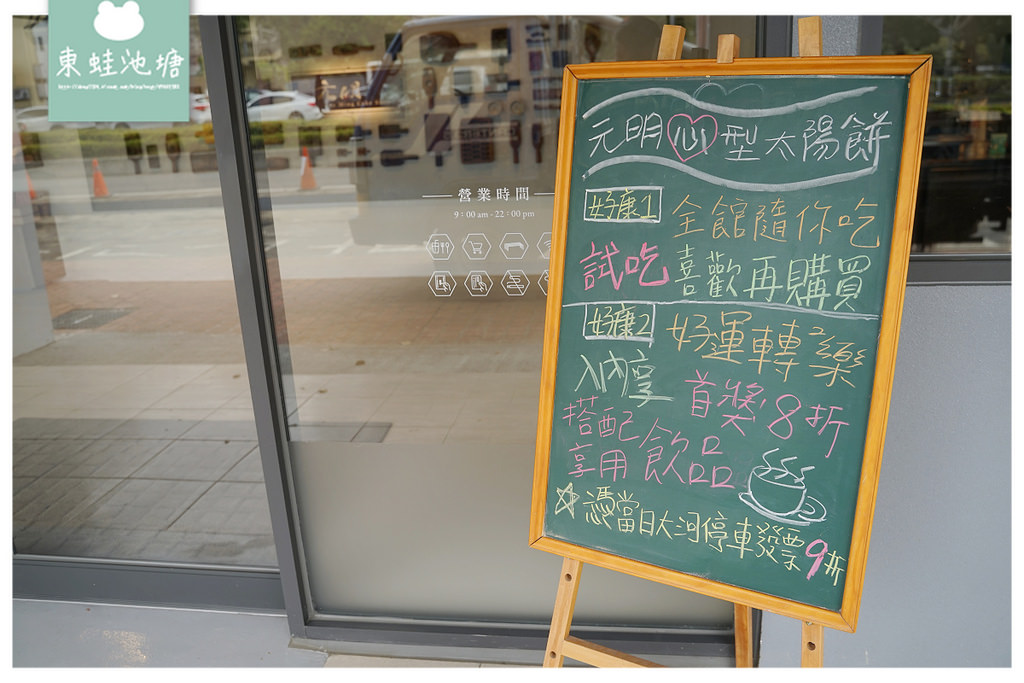 東蛙池塘
營業時間
9:00 am - 22:00 pm
元明心型太陽餅
好康1 全館隨你吃
試吃 喜歡再購買
好康2 好運轉樂
入內享 首獎8折
搭配
享用 飲品
憑當日大河停車發票9折